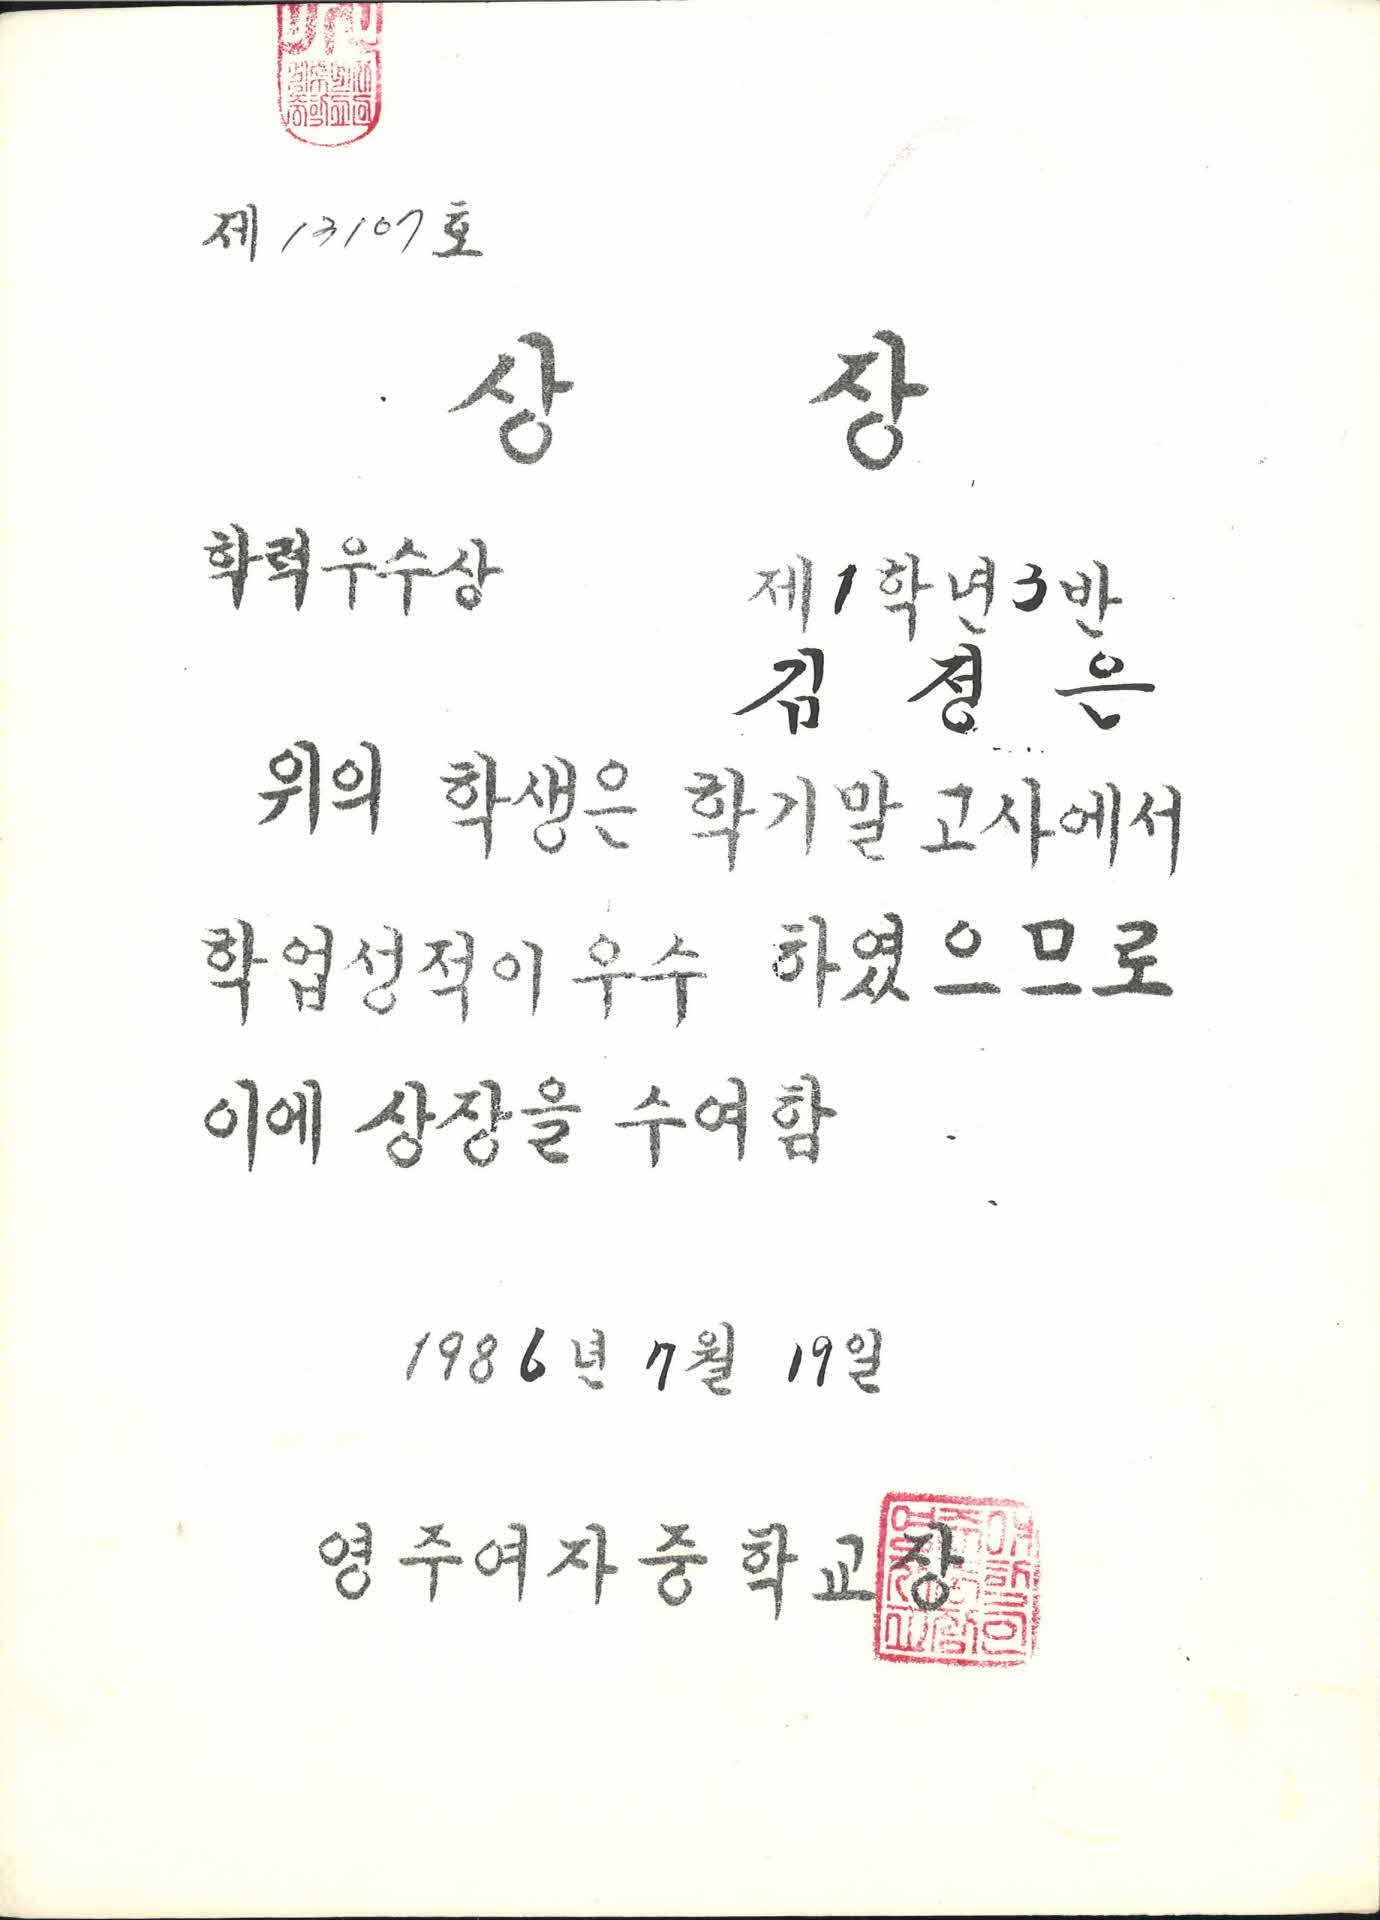 제 13107 호
상 장
학력우수상
제 1 학년 3 반
김 경 은
위의 학생은 학기말 고사에서
학업성적이 우수 하였으므로
이에 상장을 수여함
1986년 7월 19일
영주여자중학교장